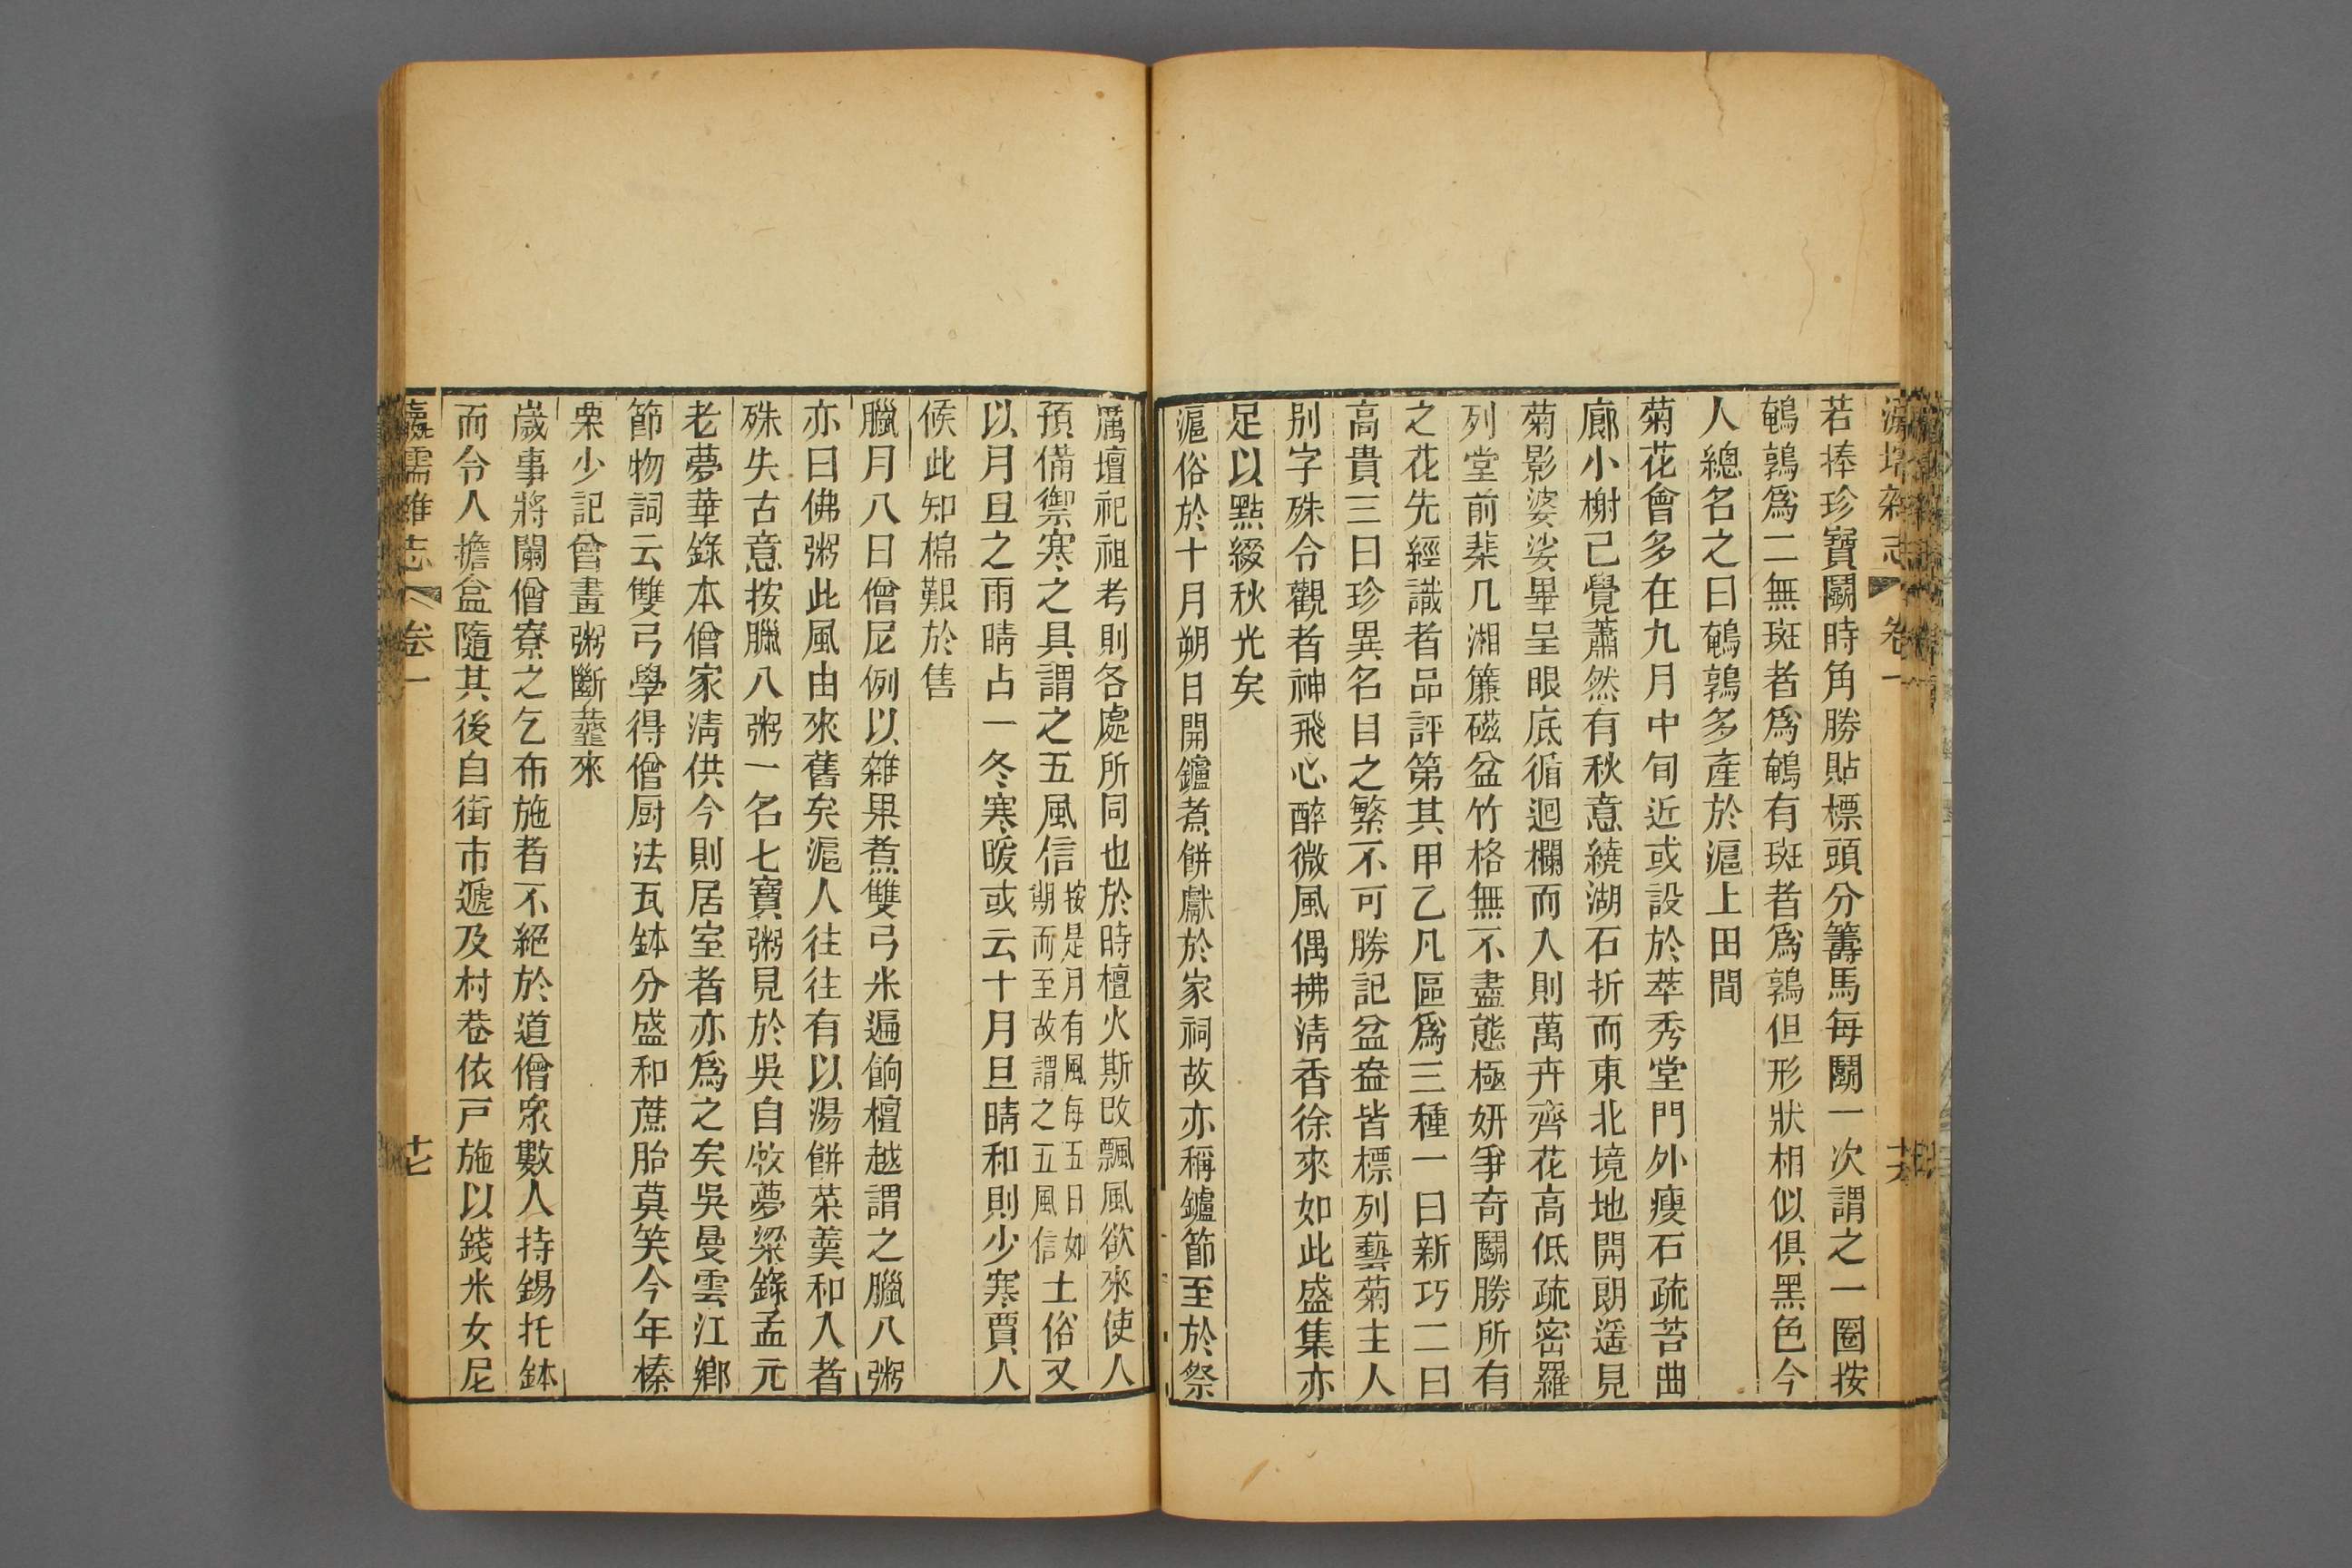 雜志 卷一 十六
若捧珍寶鬭時角勝貼標頭分籌馬每鬭一次謂之一圈按
鵪鶉爲二無斑者爲鵪有斑者爲鶉但形狀相似俱黑色今
人總名之曰鵪鶉多產於滬上田間
菊花會多在九月中旬近或設於萃秀堂門外瘦石疏苔曲
廊小榭已覺蕭然有秋意繞湖石折而東北境地開朗遥見
菊影婆娑畢呈眼底循迴欄而入則萬卉齊花高低疏密羅
列堂前棐几湘簾磁盆竹格無不盡態極妍爭奇鬭勝所有
之花先經識者品評第其甲乙凡區爲三種一曰新巧二曰
高貴三曰珍異名目之繁不可勝記盆盎皆標列藝菊主人
别字殊令觀者神飛心醉微風偶拂淸香徐來如此盛集亦
足以點綴秋光矣
滬俗於十月朔日開鑪煮餅獻於家祠故亦稱鑪節至於祭
厲壇祀祖考則各處所同也於時檀火斯改飄風欲來使人
預備禦寒之具謂之五風信按是月有風每五日如期而至故謂之五風信土俗又
以月旦之雨晴占一冬寒暖或云十月旦晴和則少寒賈人
候此知棉艱於售
臘月八日僧尼例以雜果煮雙弓米遍餉檀越謂之臘八粥
亦曰佛粥此風由來舊矣滬人往往有以湯餅菜羹和入者
殊失古意按臘八粥一名七寶粥見於吳自牧夢粱錄孟元
老夢華錄本僧家淸供今則居室者亦爲之矣吳曼雲江鄉
節物詞云雙弓學得僧厨法瓦鉢分盛和蔗胎莫笑今年榛
栗少記曾畫粥斷虀來
歲事將闌僧寮之乞布施者不絕於道僧衆數人持錫托鉢
而令人擔盒隨其後自街市遞及村巷依戸施以錢米女尼
瀛壖雜志 卷一 十七